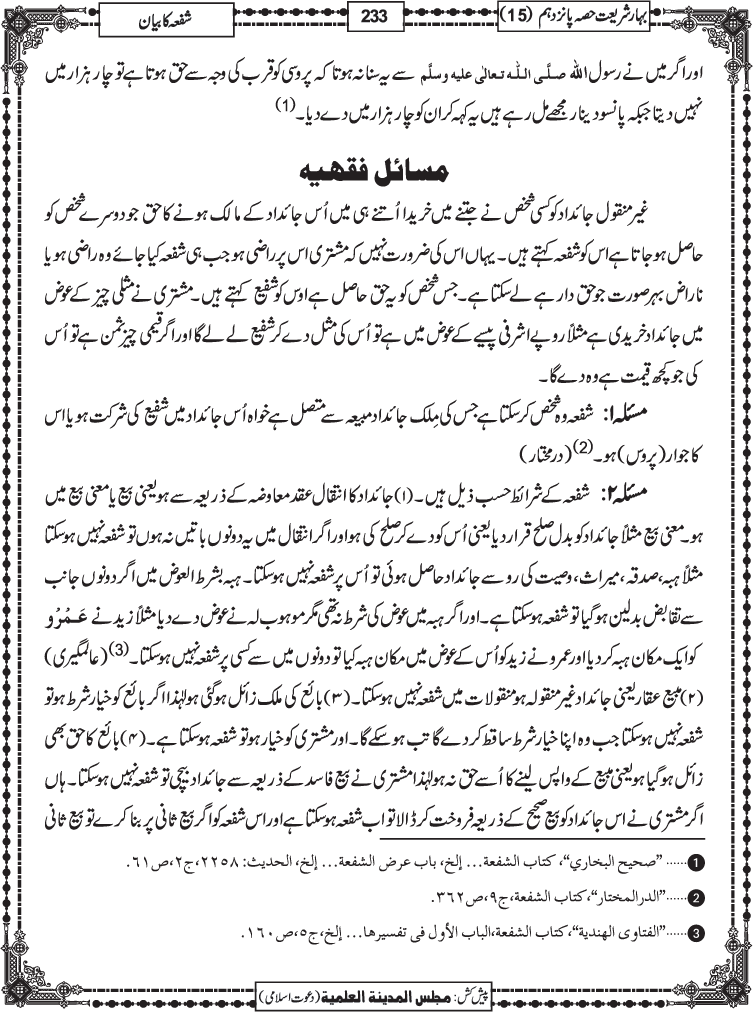 بہارِ شریعت حصہ پانزدہم (15)
233
شفعہ کا بیان
اور اگر میں نے رسول اللہ صلَّی اللہ تعالٰی علیہ وسلَّم سے یہ سنا نہ ہوتا کہ پروسی کو قرب کی وجہ سے حق ہوتا ہے تو چار ہزار میں
نہیں دیتا جبکہ پانسو دینار مجھے مل رہے ہیں یہ کہہ کر ان کو چار ہزار میں دے دیا۔(1)
مسائل فقہیہ
غیر منقول جائداد کو کسی شخص نے جتنے میں خریدا اُتنے ہی میں اُس جائداد کے مالک ہونے کا حق جو دوسرے شخص کو
حاصل ہو جاتا ہے اس کو شفعہ کہتے ہیں۔ یہاں اس کی ضرورت نہیں کہ مشتری اس پر راضی ہو جب ہی شفعہ کیا جائے وہ راضی ہو یا
ناراض بہر صورت جو حق دار ہے لے سکتا ہے۔ جس شخص کو یہ حق حاصل ہے اوس کو شفیع کہتے ہیں۔ مشتری نے مثلی چیز کے عوض
میں جائداد خریدی ہے مثلاً روپے اشرفی پیسے کے عوض میں ہے تو اُس کی مثل دے کر شفیع لے لے گا اور اگر قیمی چیز ثمن ہے تو اُس
کی جو کچھ قیمت ہے وہ دے گا۔
مسئلہ ۱: شفعہ وہ شخص کر سکتا ہے جس کی مِلک جائداد مبیعہ سے متصل ہے خواہ اُس جائداد میں شفیع کی شرکت ہو یا اس
کا جوار (پروس) ہو۔(2) (درمختار)
مسئلہ ۲: شفعہ کے شرائط حسب ذیل ہیں۔ (۱) جائداد کا انتقال عقد معاوضہ کے ذریعہ سے ہو یعنی بیع یا معنی بیع میں
ہو۔ معنی بیع مثلاً جائداد کو بدل صلح قرار دیا یعنی اُس کو دے کر صلح کی ہو اور اگر انتقال میں یہ دونوں باتیں نہ ہوں تو شفعہ نہیں ہو سکتا
مثلاً ہبہ، صدقہ، میراث، وصیت کی رو سے جائداد حاصل ہوئی تو اُس پر شفعہ نہیں ہو سکتا۔ ہبہ بشرط العوض میں اگر دونوں جانب
سے تقابض بدلین ہو گیا تو شفعہ ہو سکتا ہے۔ اور اگر ہبہ میں عوض کی شرط نہ تھی مگر موہوب لہ نے عوض دے دیا مثلاً زید نے عَمْرْو
کو ایک مکان ہبہ کر دیا اور عمرو نے زید کو اُس کے عوض میں مکان ہبہ کیا تو دونوں میں سے کسی پر شفعہ نہیں ہو سکتا۔(3) (عالمگیری)
(۲) مبیع عقار یعنی جائداد غیر منقولہ ہو منقولات میں شفعہ نہیں ہو سکتا۔ (۳) بائع کی ملک زائل ہو گئی ہو لہٰذا اگر بائع کو خیار شرط ہو تو
شفعہ نہیں ہو سکتا جب وہ اپنا خیار شرط ساقط کر دے گا تب ہو سکے گا۔ اور مشتری کو خیار ہو تو شفعہ ہو سکتا ہے۔ (۴) بائع کا حق بھی
زائل ہو گیا ہو یعنی مبیع کے واپس لینے کا اُسے حق نہ ہو لہٰذا مشتری نے بیع فاسد کے ذریعہ سے جائداد بیچی تو شفعہ نہیں ہو سکتا۔ ہاں
اگر مشتری نے اس جائداد کو بیع صحیح کے ذریعہ فروخت کر ڈالا تو اب شفعہ ہو سکتا ہے اور اس شفعہ کو اگر بیع ثانی پر بنا کرے تو بیع ثانی
1 ...... "صحیح البخاري"، کتاب الشفعة... إلخ، باب عرض الشفعة... إلخ، الحدیث: ۲۲۵۸، ج۲، ص۶۱.
2 ......"الدرالمختار"، کتاب الشفعة، ج۹، ص۳۶۲.
3 ......"الفتاوی الھندیة"، کتاب الشفعة، الباب الأول فی تفسیرھا... إلخ، ج۵، ص۱۶۰.
پیش کش: مجلس المدینۃ العلمیۃ (دعوت اسلامی)